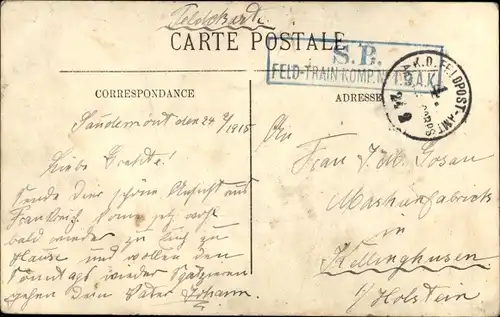 Feldkarte
CARTE POSTALE
S.B.
FELD-TRAIN-KOMP. N I.9.A.K.
K.D. FELDPOST-AMT
24
CORRESPONDANCE
ADRESSE
Saudemont den 24 9/1915
Liebe Grethe!
Sende dir schöne Ansicht aus
Frankreich. Komme jetz wohl
bald wieder zu Euch zu
Hause und wollen den
Sonntags wieder Spatzieren
gehen Dein Vater Johann.
An
Frau J. M. Gosau
Maskenfabrick
in
Kellinghusen
i/Holstein